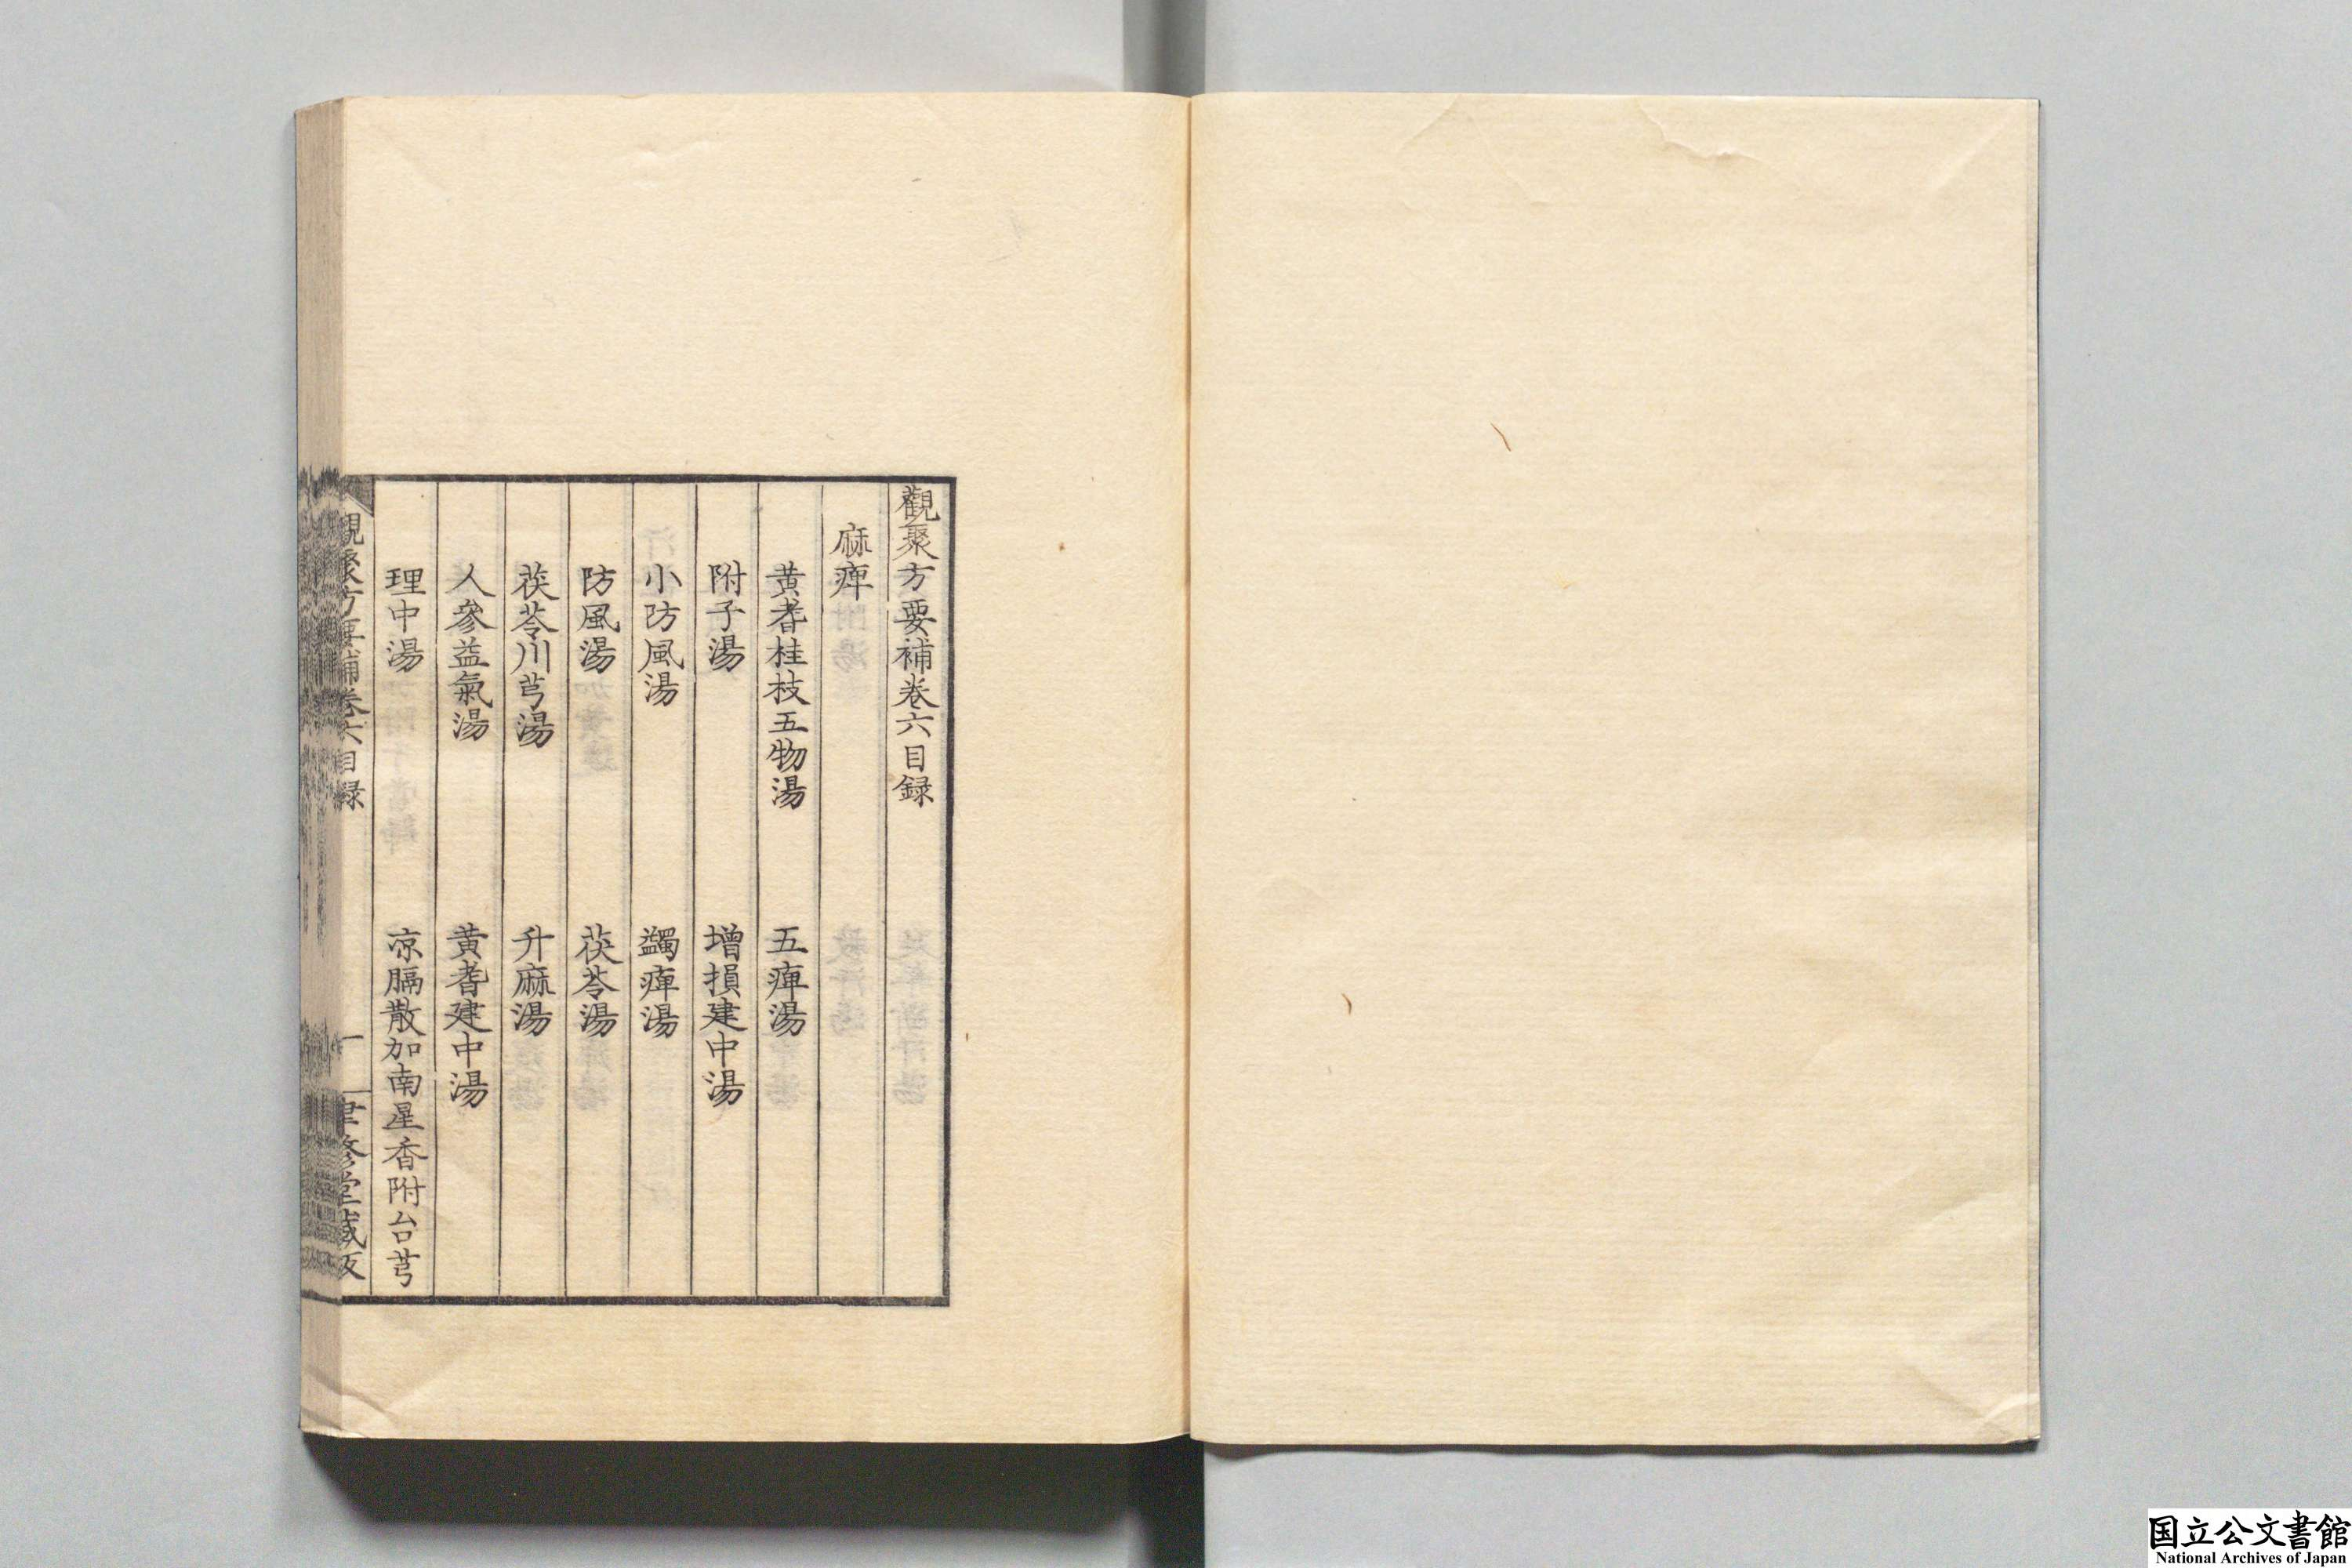 觀聚方要補卷六目録
麻痺
黄耆桂枝五物湯 五痺湯
附子湯 增損建中湯
小防風湯 蠲痺湯
防風湯 茯苓湯
茯苓川芎湯 升麻湯
人參益氣湯 黄耆建中湯
理中湯 凉膈散加南星香附台芎
觀聚方要補卷六目録 一 聿修堂藏版
国立公文書館
National Archives of Japan